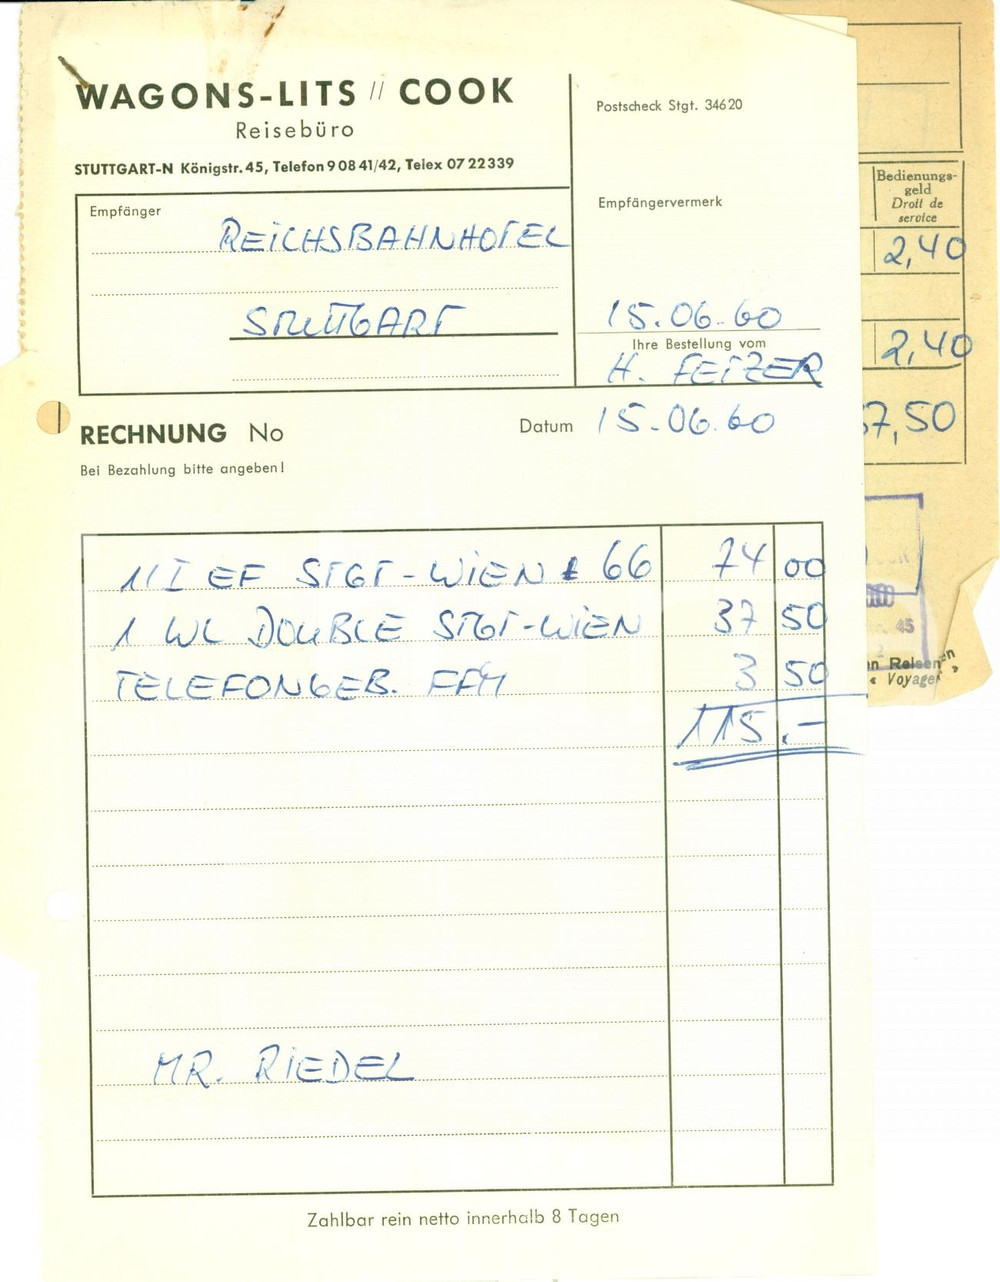 WAGONS-LITS // COOK
Reisebüro
STUTTGART-N Königstr. 45, Telefon 9 08 41/42, Telex 07 22339
Postscheck Stgt. 34620
Empfänger
REICHSBAHNHOTEL
STUTTGART
Empfängervermerk
15.06.60
Ihre Bestellung vom
H. FETZER
RECHNUNG No
Datum 15.06.60
Bei Bezahlung bitte angeben!
1/I EF STGT-WIEN 66 74 00
1 WL DOUBLE STGT-WIEN 37 50
TELEFONGEB. FFM 3 50
115.-
MR. RIEDEL
Zahlbar rein netto innerhalb 8 Tagen
Bedienungs-
geld
Droit de
service
2,40
2,40
7,50
45
n Reisen
« Voyage »